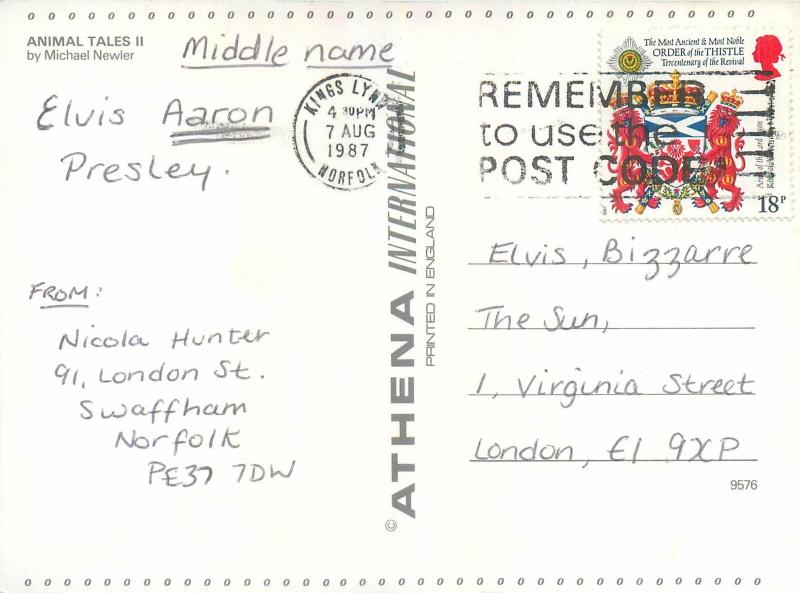 ANIMAL TALES II
by Michael Newler
Middle name
Elvis Aaron
Presley.
FROM:
Nicola Hunter
91, London St.
Swaffham
Norfolk
PE37 7DW
© ATHENA INTERNATIONAL
PRINTED IN ENGLAND
KINGS LYNN
4 30PM
7 AUG
1987
NORFOLK
REMEMBER
to use the
POST CODE
The Most Ancient & Most Noble
ORDER of the THISTLE
Tercentenary of the Revival
18P
Elvis, Bizzarre
The Sun,
1, Virginia Street
London, E1 9XP
9576